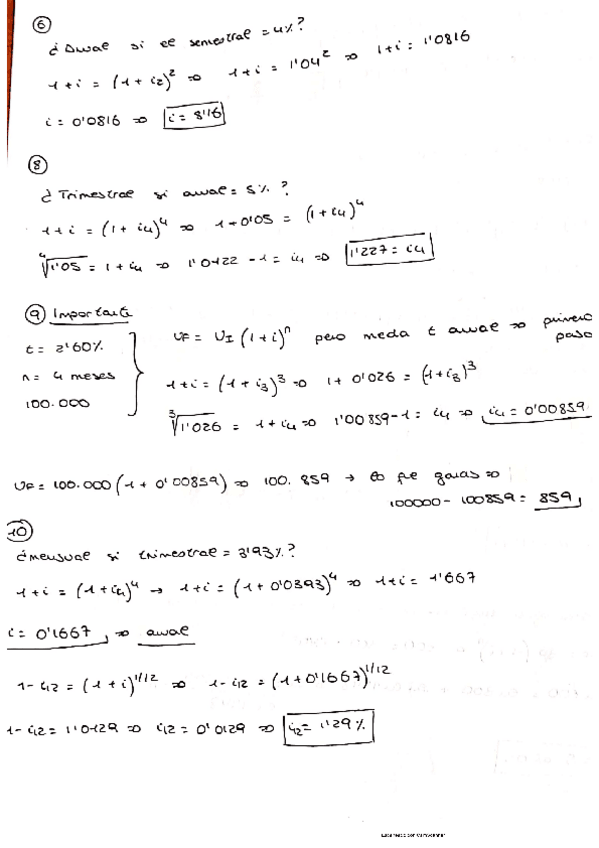 6
¿Anual si el semestral = 4%?
1+i = (1 + i2)^2 => 1+i = 1'04^2 => 1+i = 1'0816
i = 0'0816 => i = 8'16
8
¿Trimestral si anual = 5%?
1+i = (1+i4)^4 => 1+0'05 = (1+i4)^4
4√1'05 = 1+i4 => 1'0122 - 1 = i4 => 1'227 = i4
9 Importante
t = 2'60%
n = 4 meses
100.000
VF = VI (1+i)^n pero me da t anual => primero paso
1+i = (1+i3)^3 => 1+0'026 = (1+i3)^3
3√1'026 = 1+i4 => 1'00859-1 = i4 => i4 = 0'00859
VF = 100.000 (1 + 0'00859) => 100.859 → lo que ganas =>
100000 - 100859 = 859,
10
¿mensual si trimestral = 3'93%?
1+i = (1+i4)^4 → 1+i = (1+0'0393)^4 => 1+i = 1'667
i = 0'1667, => anual
1-i12 = (1+i)^1/12 => 1-i12 = (1+0'1667)^1/12
1-i12 = 1'0129 => i12 = 0'0129 => i12 = 1'29%